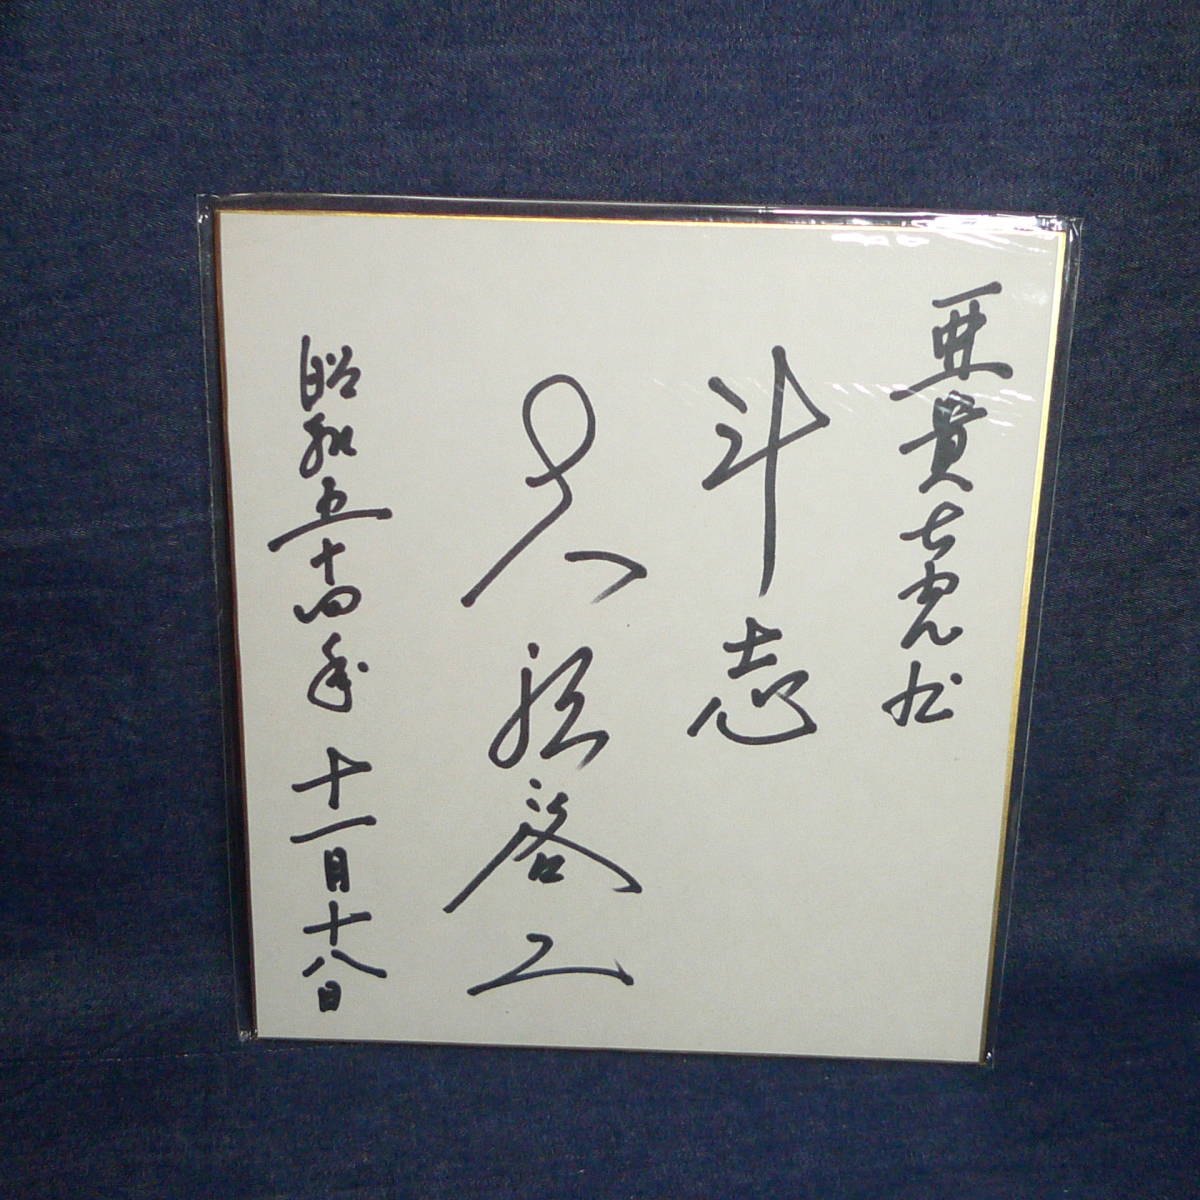 亜貴ちゃん江
斗志
昭和五十四年 十一月十八日